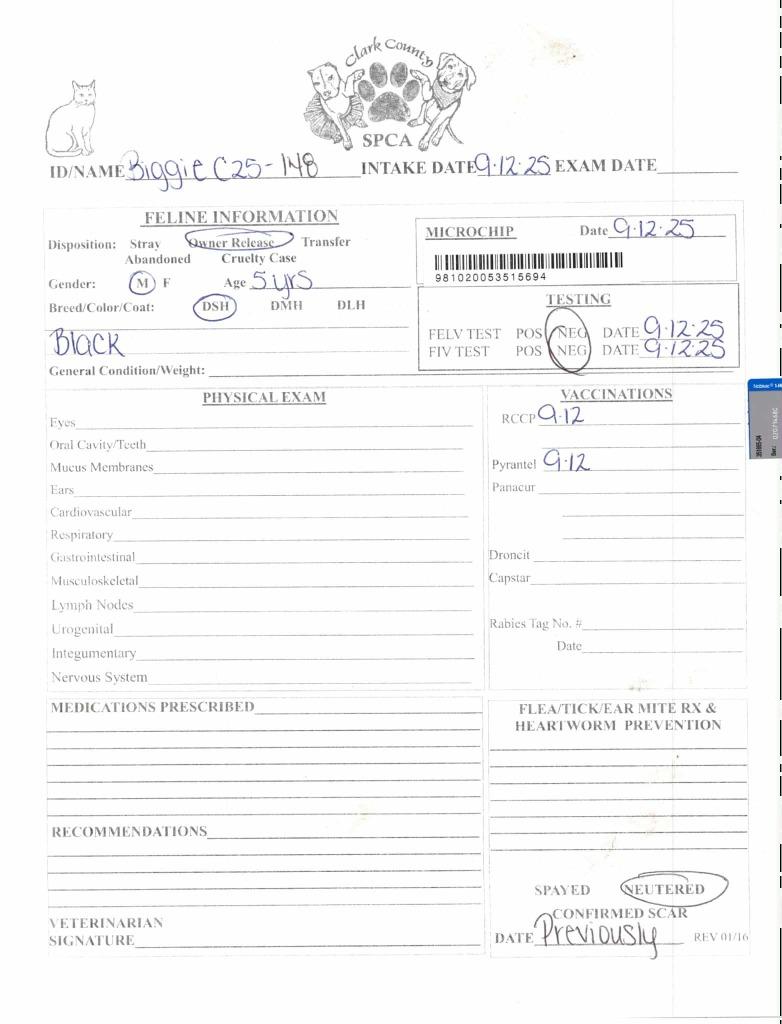 Clark County
SPCA
ID/NAME Biggie C25-148 INTAKE DATE 9.12.25 EXAM DATE
FELINE INFORMATION
Disposition: Stray Owner Release Transfer
Abandoned Cruelty Case
Gender: M F Age 5 yrs
Breed/Color/Coat: DSH DMH DLH
Black
General Condition/Weight:
MICROCHIP Date 9.12.25
981020053515694
TESTING
FELV TEST POS NEG DATE 9.12.25
FIV TEST POS NEG DATE 9.12.25
PHYSICAL EXAM
Eyes
Oral Cavity/Teeth
Mucus Membranes
Ears
Cardiovascular
Respiratory
Gastrointestinal
Musculoskeletal
Lymph Nodes
Urogenital
Integumentary
Nervous System
VACCINATIONS
RCCP 9.12
Pyrantel 9.12
Panacur
Droncit
Capstar
Rabies Tag No. #
Date
MEDICATIONS PRESCRIBED
RECOMMENDATIONS
VETERINARIAN
SIGNATURE
FLEA/TICK/EAR MITE RX &
HEARTWORM PREVENTION
SPAYED NEUTERED
CONFIRMED SCAR
DATE Previously REV 01/16